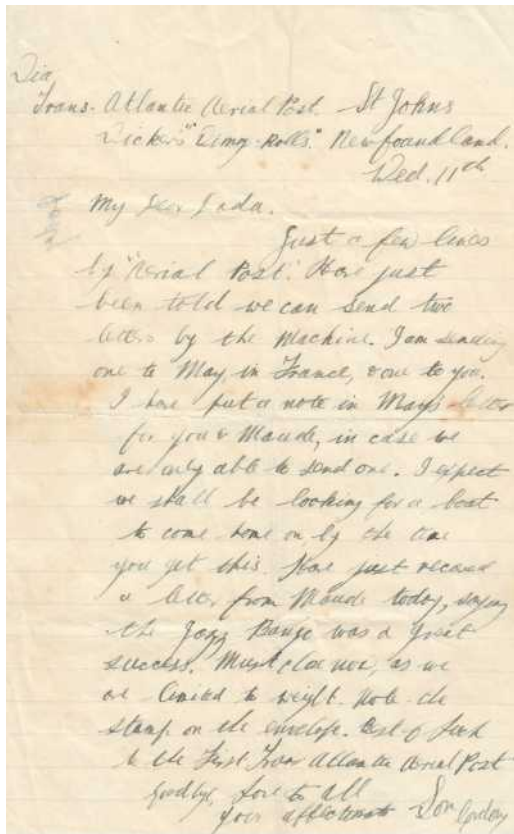 Via
Trans-Atlantic Aerial Post. St Johns
Vickers "Vimy-Rolls." Newfoundland.
Wed. 11th
My Dear Dada.
Just a few lines
by "Aerial Post". Have just
been told we can send two
letters by the Machine. I am sending
one to May, in France, & one to you.
I have put a note in May's letter
for you & Maude, in case we
are only able to send one. I expect
we shall be looking for a boat
to come home on by the time
you get this. Have just received
a letter from Maude today, saying
the Jazz Band was a great
success. Must close now, as we
are limited to weight. Note the
stamp on the envelope. Best of luck
to the First Trans Atlantic Aerial Post
Goodbye, love to all
your affectionate Son